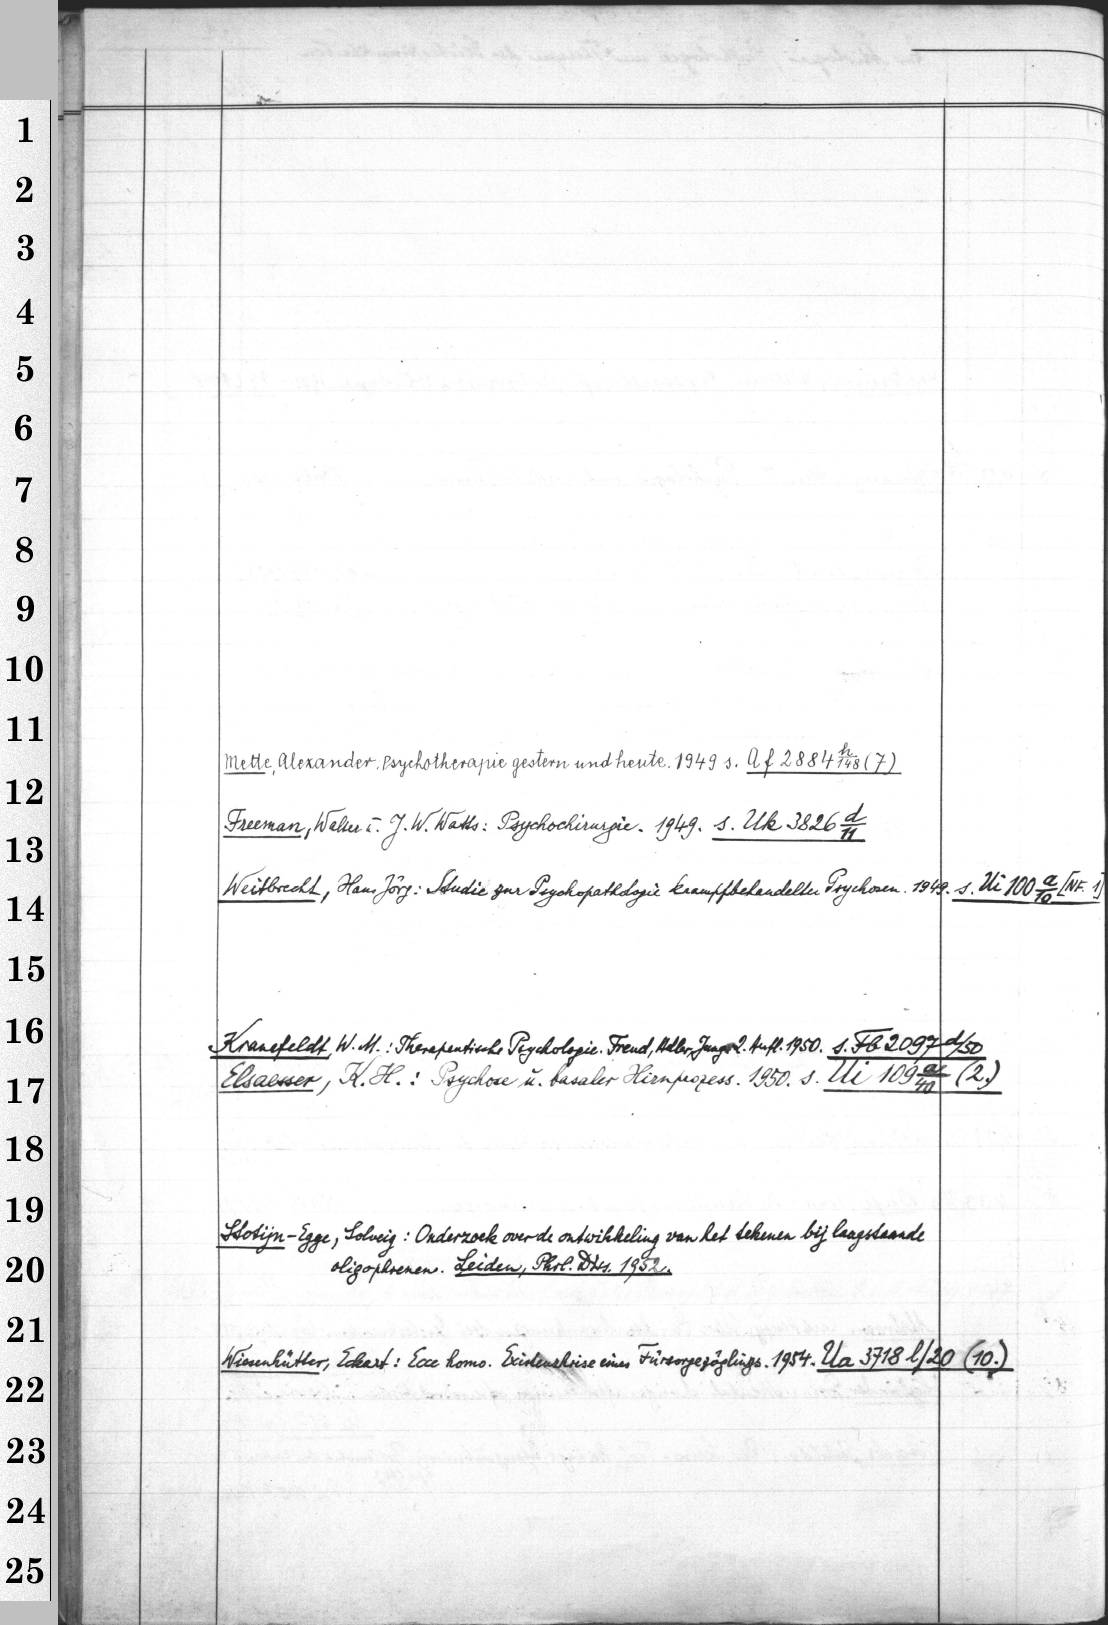 1
2
3
4
5
6
7
8
9
10
11
Mette, Alexander. Psychotherapie gestern und heute. 1949 s. Af 2884 h/148 (7)
12
Freeman, Walter u. J. W. Watts: Psychochirurgie. 1949. s. Uk 3826 d/11
13
Weitbrecht, Hans Jörg: Studie zur Psychopathologie krampfbehandelter Psychosen. 1949. s. Ui 100 a/10 [NF. 1]
14
15
16
Kranefeldt, W. M.: Therapeutische Psychologie. Freud, Adler, Jung. 2. Aufl. 1950. s. Fb 2097 d/50
Elsaesser, K. H.: Psychose u. basaler Hirnprozess. 1950. s. Ui 109 /40 (2.)
17
18
19
Stotijn-Egge, Solveig: Onderzoek over de ontwikkeling van het tekenen bij laagstaande
20
oligophrenen. Leiden, Phil. Diss. 1952.
21
Wiesenhütter, Eckart: Ecce homo. Existenzkrise eines Fürsorgezöglings. 1954. Ua 3718 l/20 (10.)
22
23
24
25